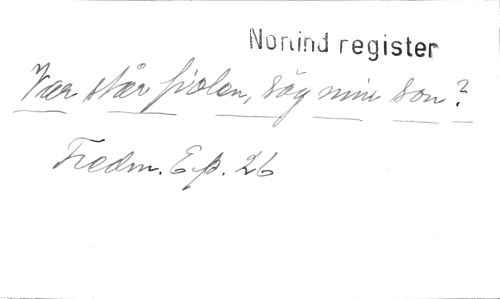 Nomind register
Var står fiolen, säg min son?
Fredm. Ep. 26